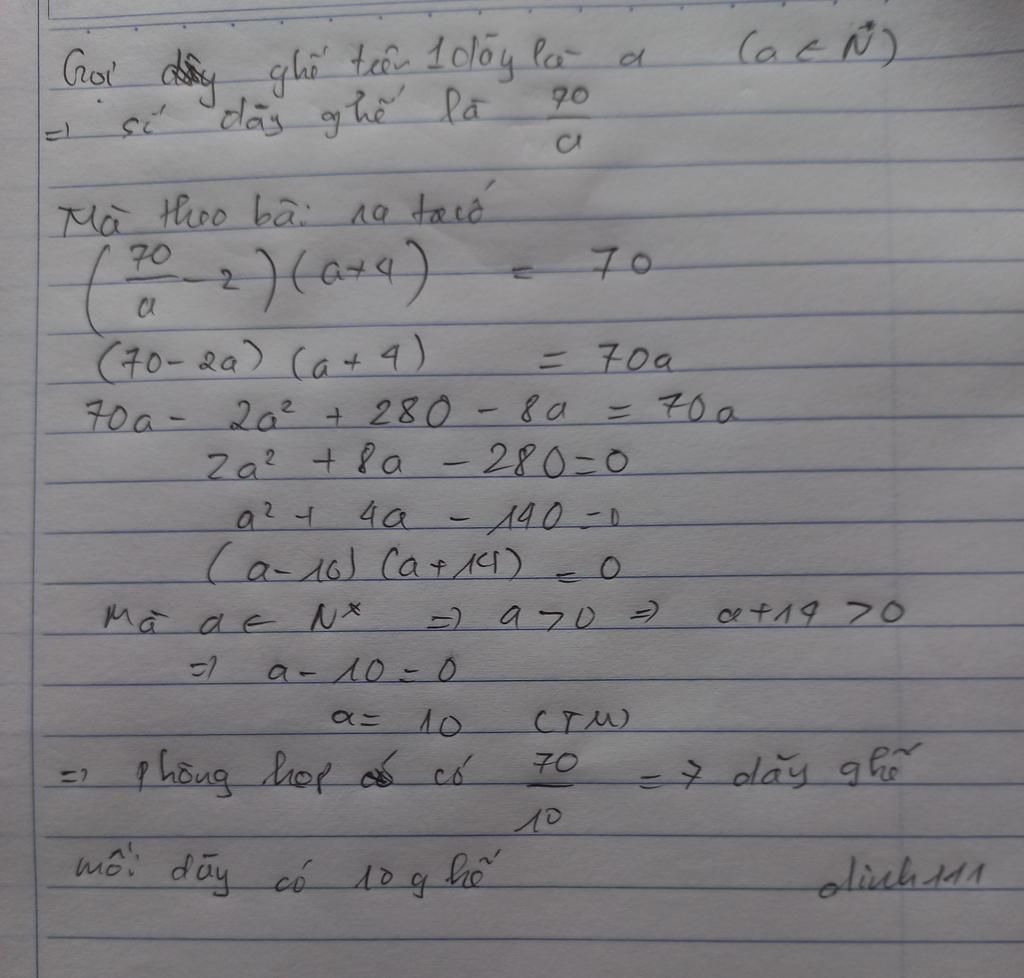 Gọi dãy ghế trên 1 dãy là a (a ∈ N*)
=> số dãy ghế là 70/a
Mà theo bài ra ta có
(70/a - 2)(a+4) = 70
(70 - 2a) (a + 4) = 70a
70a - 2a² + 280 - 8a = 70a
2a² + 8a - 280 = 0
a² + 4a - 140 = 0
(a - 10) (a + 14) = 0
Mà a ∈ N* => a > 0 => a + 14 > 0
=> a - 10 = 0
a = 10 (TM)
=> phòng họp có 70/10 = 7 dãy ghế
mỗi dãy có 10 ghế dinh111